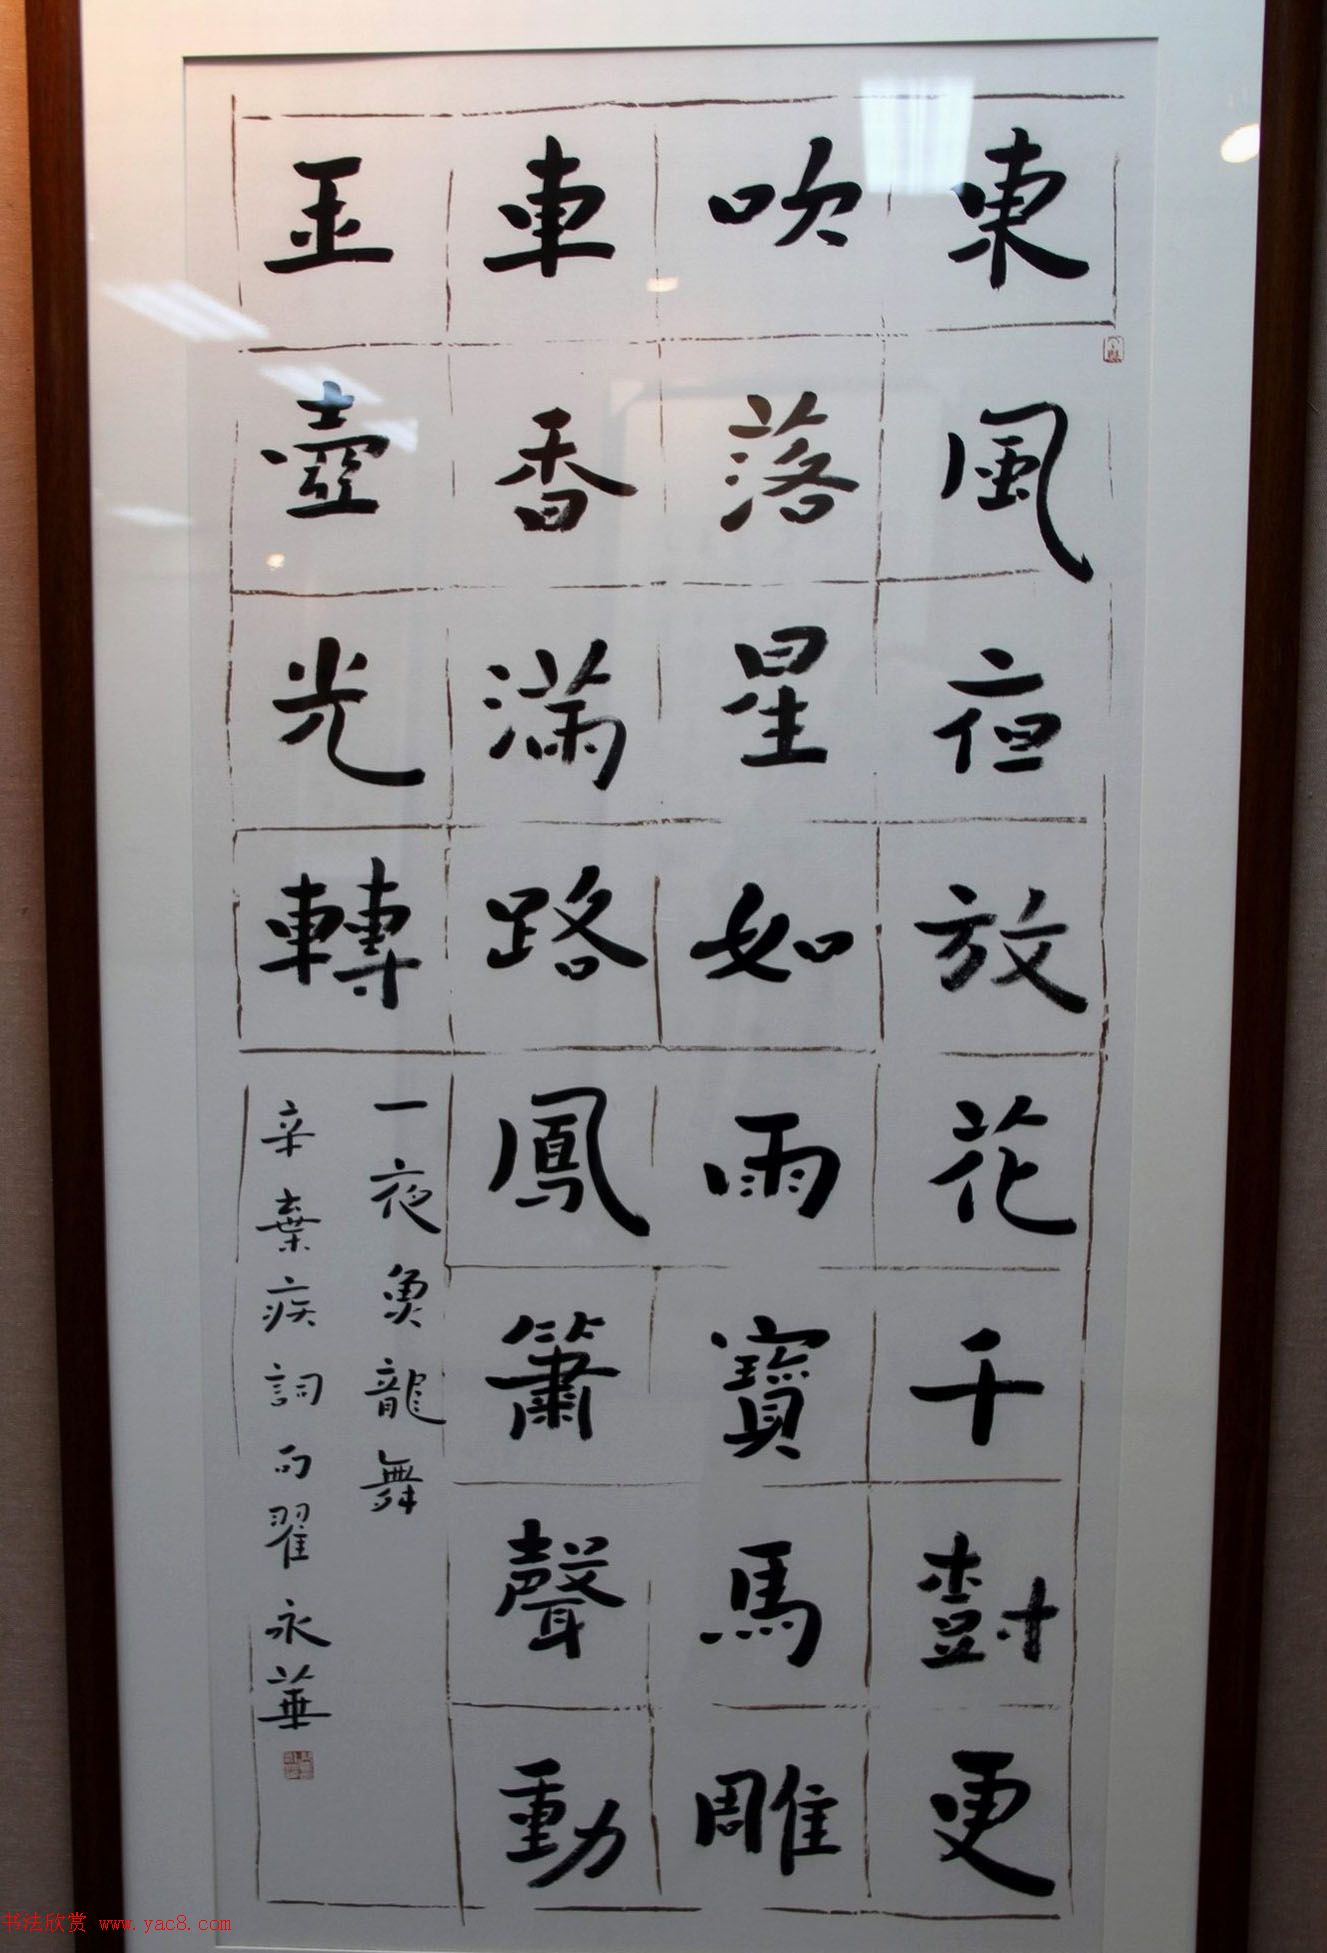 東風夜放花千樹更
吹落星如雨寶馬雕
車香滿路鳳簫聲動
玉壺光轉
一夜魚龍舞
辛棄疾詞句翟永華
书法欣赏 www.yac8.com